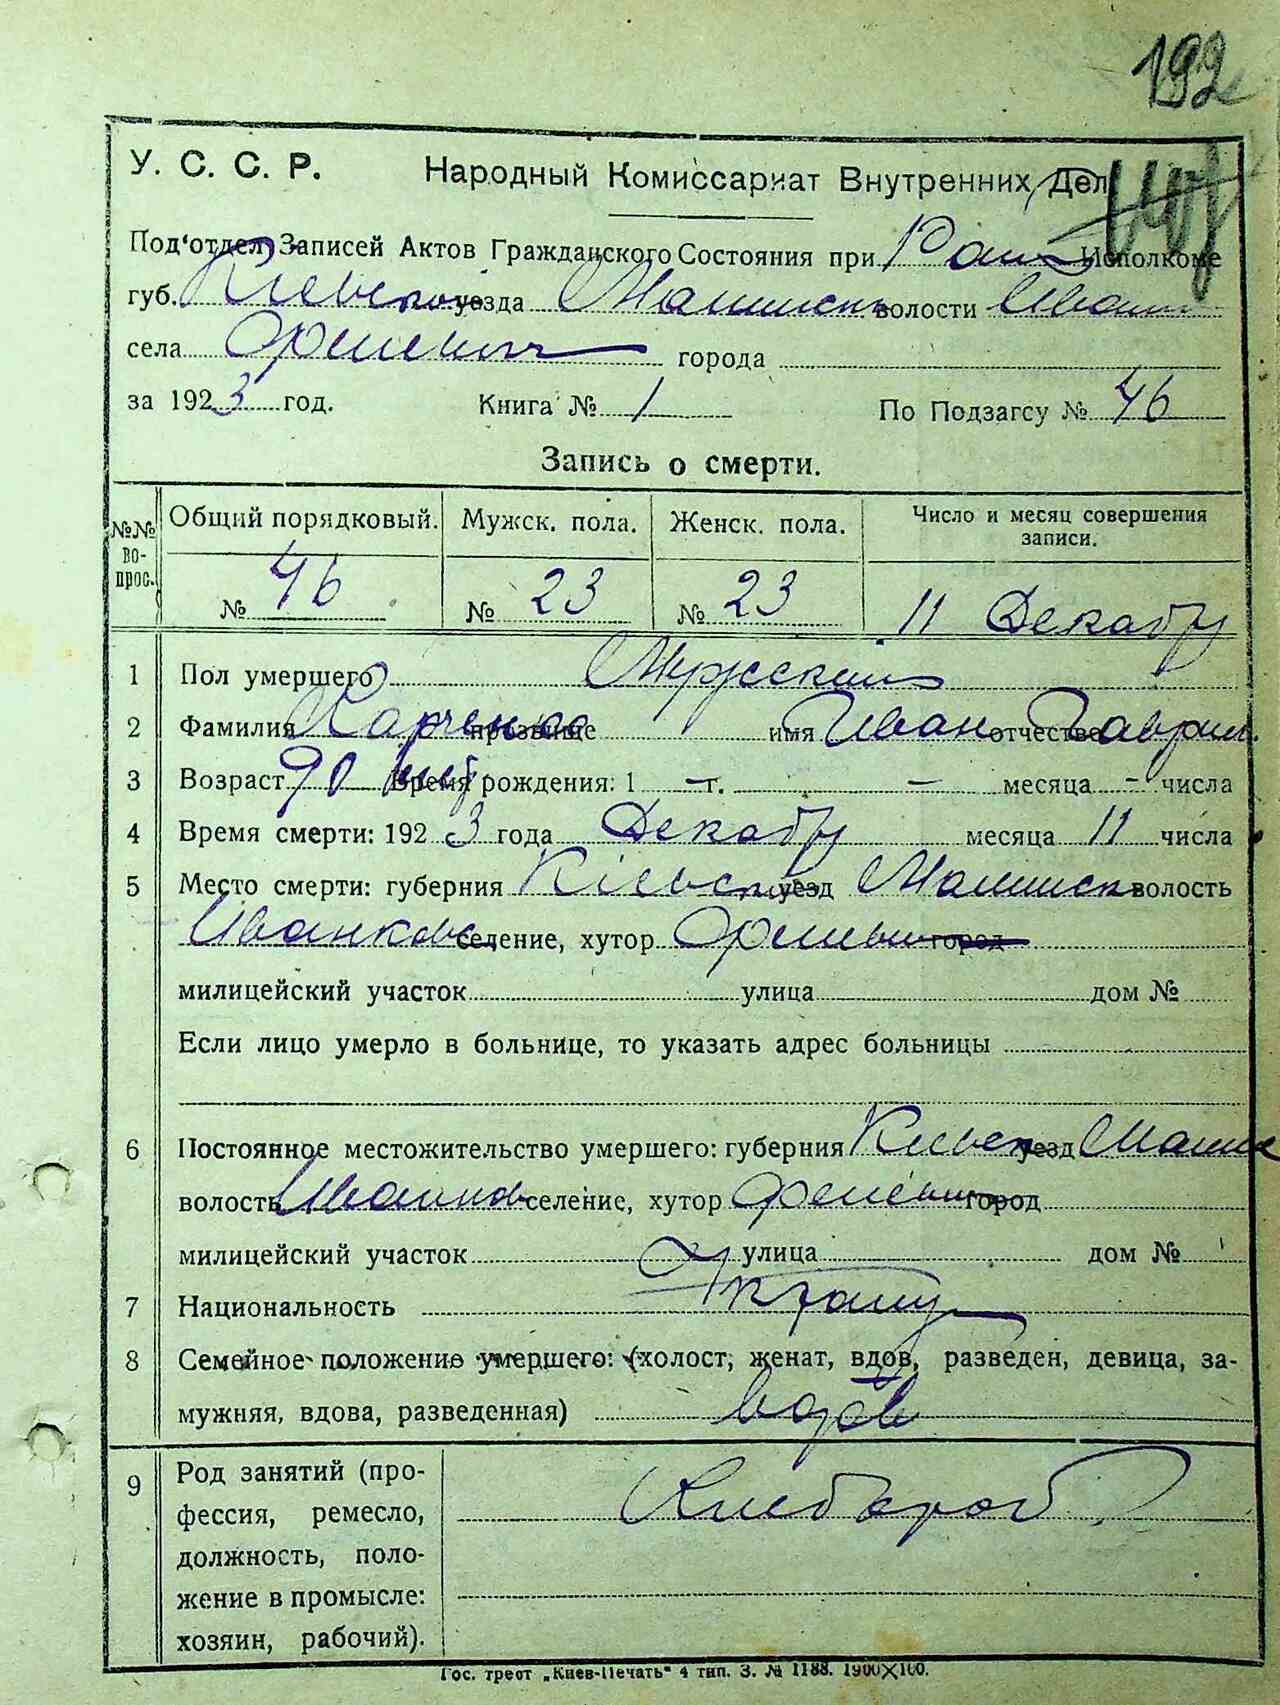 192
У. С. С. Р. Народный Комиссариат Внутренних Дел
Под'отдел Записей Актов Гражданского Состояния при Исполкоме
губ. Киевско уезда Малинск волости Иван
села города
за 1923 год. Книга № 1 По Подзагсу № 46
Запись о смерти.
№№ во-прос. Общий порядковый. Мужск. пола. Женск. пола. Число и месяц совершения записи.
№ 46 № 23 № 23 11 Декабр
1 Пол умершего Мужской
2 Фамилия Харченко прозвище имя Иван отчество Гаврил.
3 Возраст 90 лет Время рождения: 1 – г. – месяца – числа
4 Время смерти: 1923 года Декабр месяца 11 числа
5 Место смерти: губерния Киевск уезд Малинск волость
Иванков селение, хутор город
милицейский участок улица дом №
Если лицо умерло в больнице, то указать адрес больницы
6 Постоянное местожительство умершего: губерния Киевск уезд Малин
волость Иванков селение, хутор город
милицейский участок улица дом №
7 Национальность
8 Семейное положение умершего: (холост, женат, вдов, разведен, девица, за-
мужняя, вдова, разведенная) вдов
9 Род занятий (про-
фессия, ремесло, Хлебороб
должность, поло-
жение в промысле:
хозяин, рабочий).
Гос. трест „Киев-Печать“ 4 тип. З. № 1188. 1900×100.